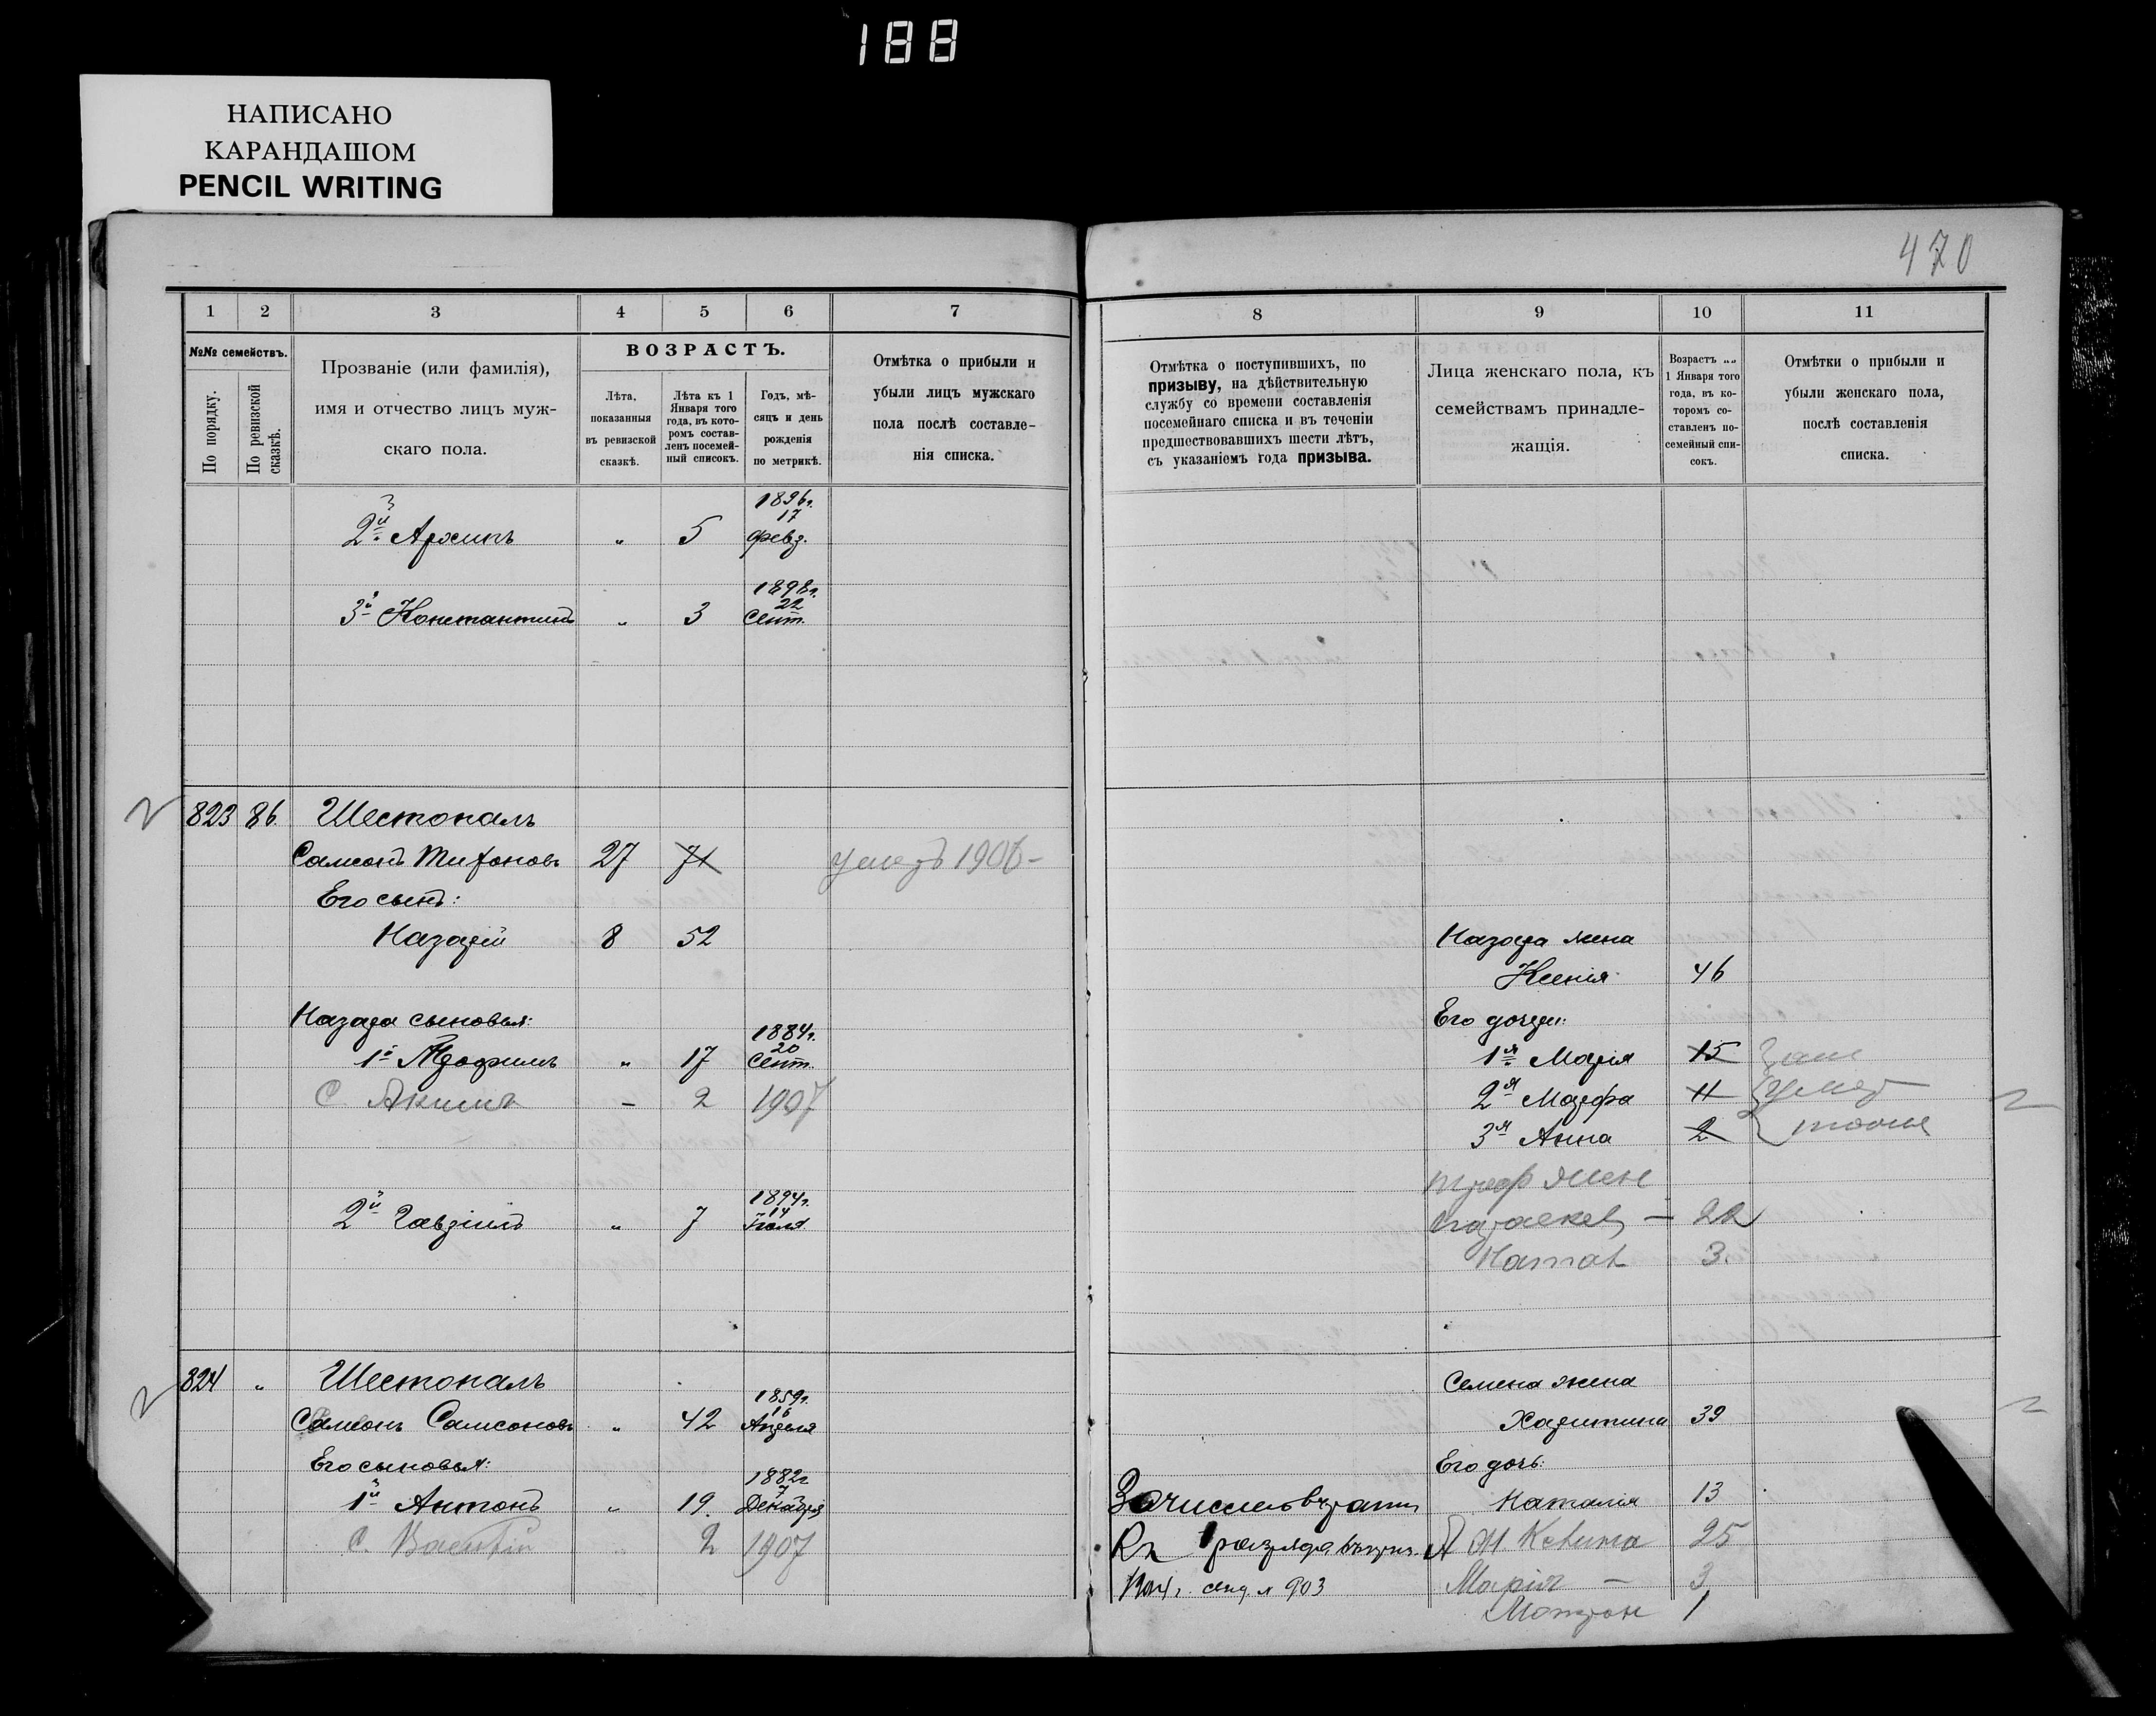 188
НАПИСАНО
КАРАНДАШОМ
PENCIL WRITING
470
1 2 3 4 5 6 7
№№ семействъ.
По порядку.
По ревизской сказкѣ.
Прозваніе (или фамилія),
имя и отчество лицъ муж-
скаго пола.
ВОЗРАСТЪ.
Лѣта,
показанныя
въ ревизской
сказкѣ.
Лѣта къ 1
Января того
года, въ кото-
ромъ состав-
ленъ посемей-
ный списокъ.
Годъ, мѣ-
сяцъ и день
рожденія
по метрикѣ.
Отмѣтка о прибыли и
убыли лицъ мужскаго
пола послѣ составле-
нія списка.
8 9 10 11
Отмѣтка о поступившихъ, по
призыву, на дѣйствительную
службу со времени составленія
посемейнаго списка и въ теченіи
предшествовавшихъ шести лѣтъ,
съ указаніемъ года призыва.
Лица женскаго пола, къ
семействамъ принадле-
жащія.
Возрастъ
1 Января того
года, въ ко-
торомъ со-
ставленъ по-
семейный спи-
сокъ.
Отмѣтки о прибыли и
убыли женскаго пола,
послѣ составленія
списка.
1896г.
17
2й Архипъ " 5 февр.
1898г.
22
3й Константинъ " 3 Сент.
823 86 Шестопалъ
Самсонъ Тихоновъ 27 71 умеръ 1906
Его сынъ:
Назарій 8 52
Назара сыновья:
1884г.
20
1й Трофимъ " 17 Сент.
С. Акимъ - 2 1907
1894г.
14
2й Гавріилъ " 7 Іюля
Назара жена
Ксенія 46
Его дочери:
1я Марія 15 зам
2я Марфа 11 умер
3я Анна 2
Троф жен
Параскев — 22
Натал 3.
824 " Шестопалъ
1859г.
16
Самсоновъ " 42 Апреля
Его сыновья:
1882г
7
1й Антонъ " 19. Декабря
С. 2 1907
Семена жена
Харитина 39
Его дочь:
Наталія 13
А Ж 25
Марія — 3
1
разряда
1904г. 903